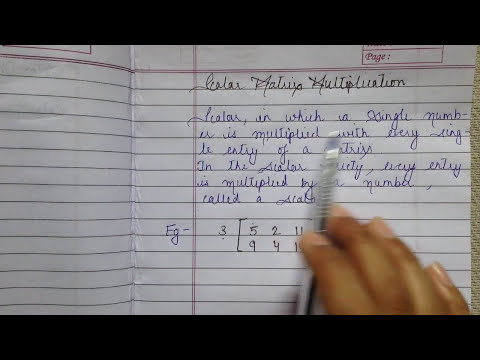 Page :
Scalar Matrix Multiplication
Scalar, in which a single numb-
er is multiplied with every sing-
le entry of a
In the scalar every entry
is multiplied by a number,
called a
Eg - 3 [ 5 2 11
9 4